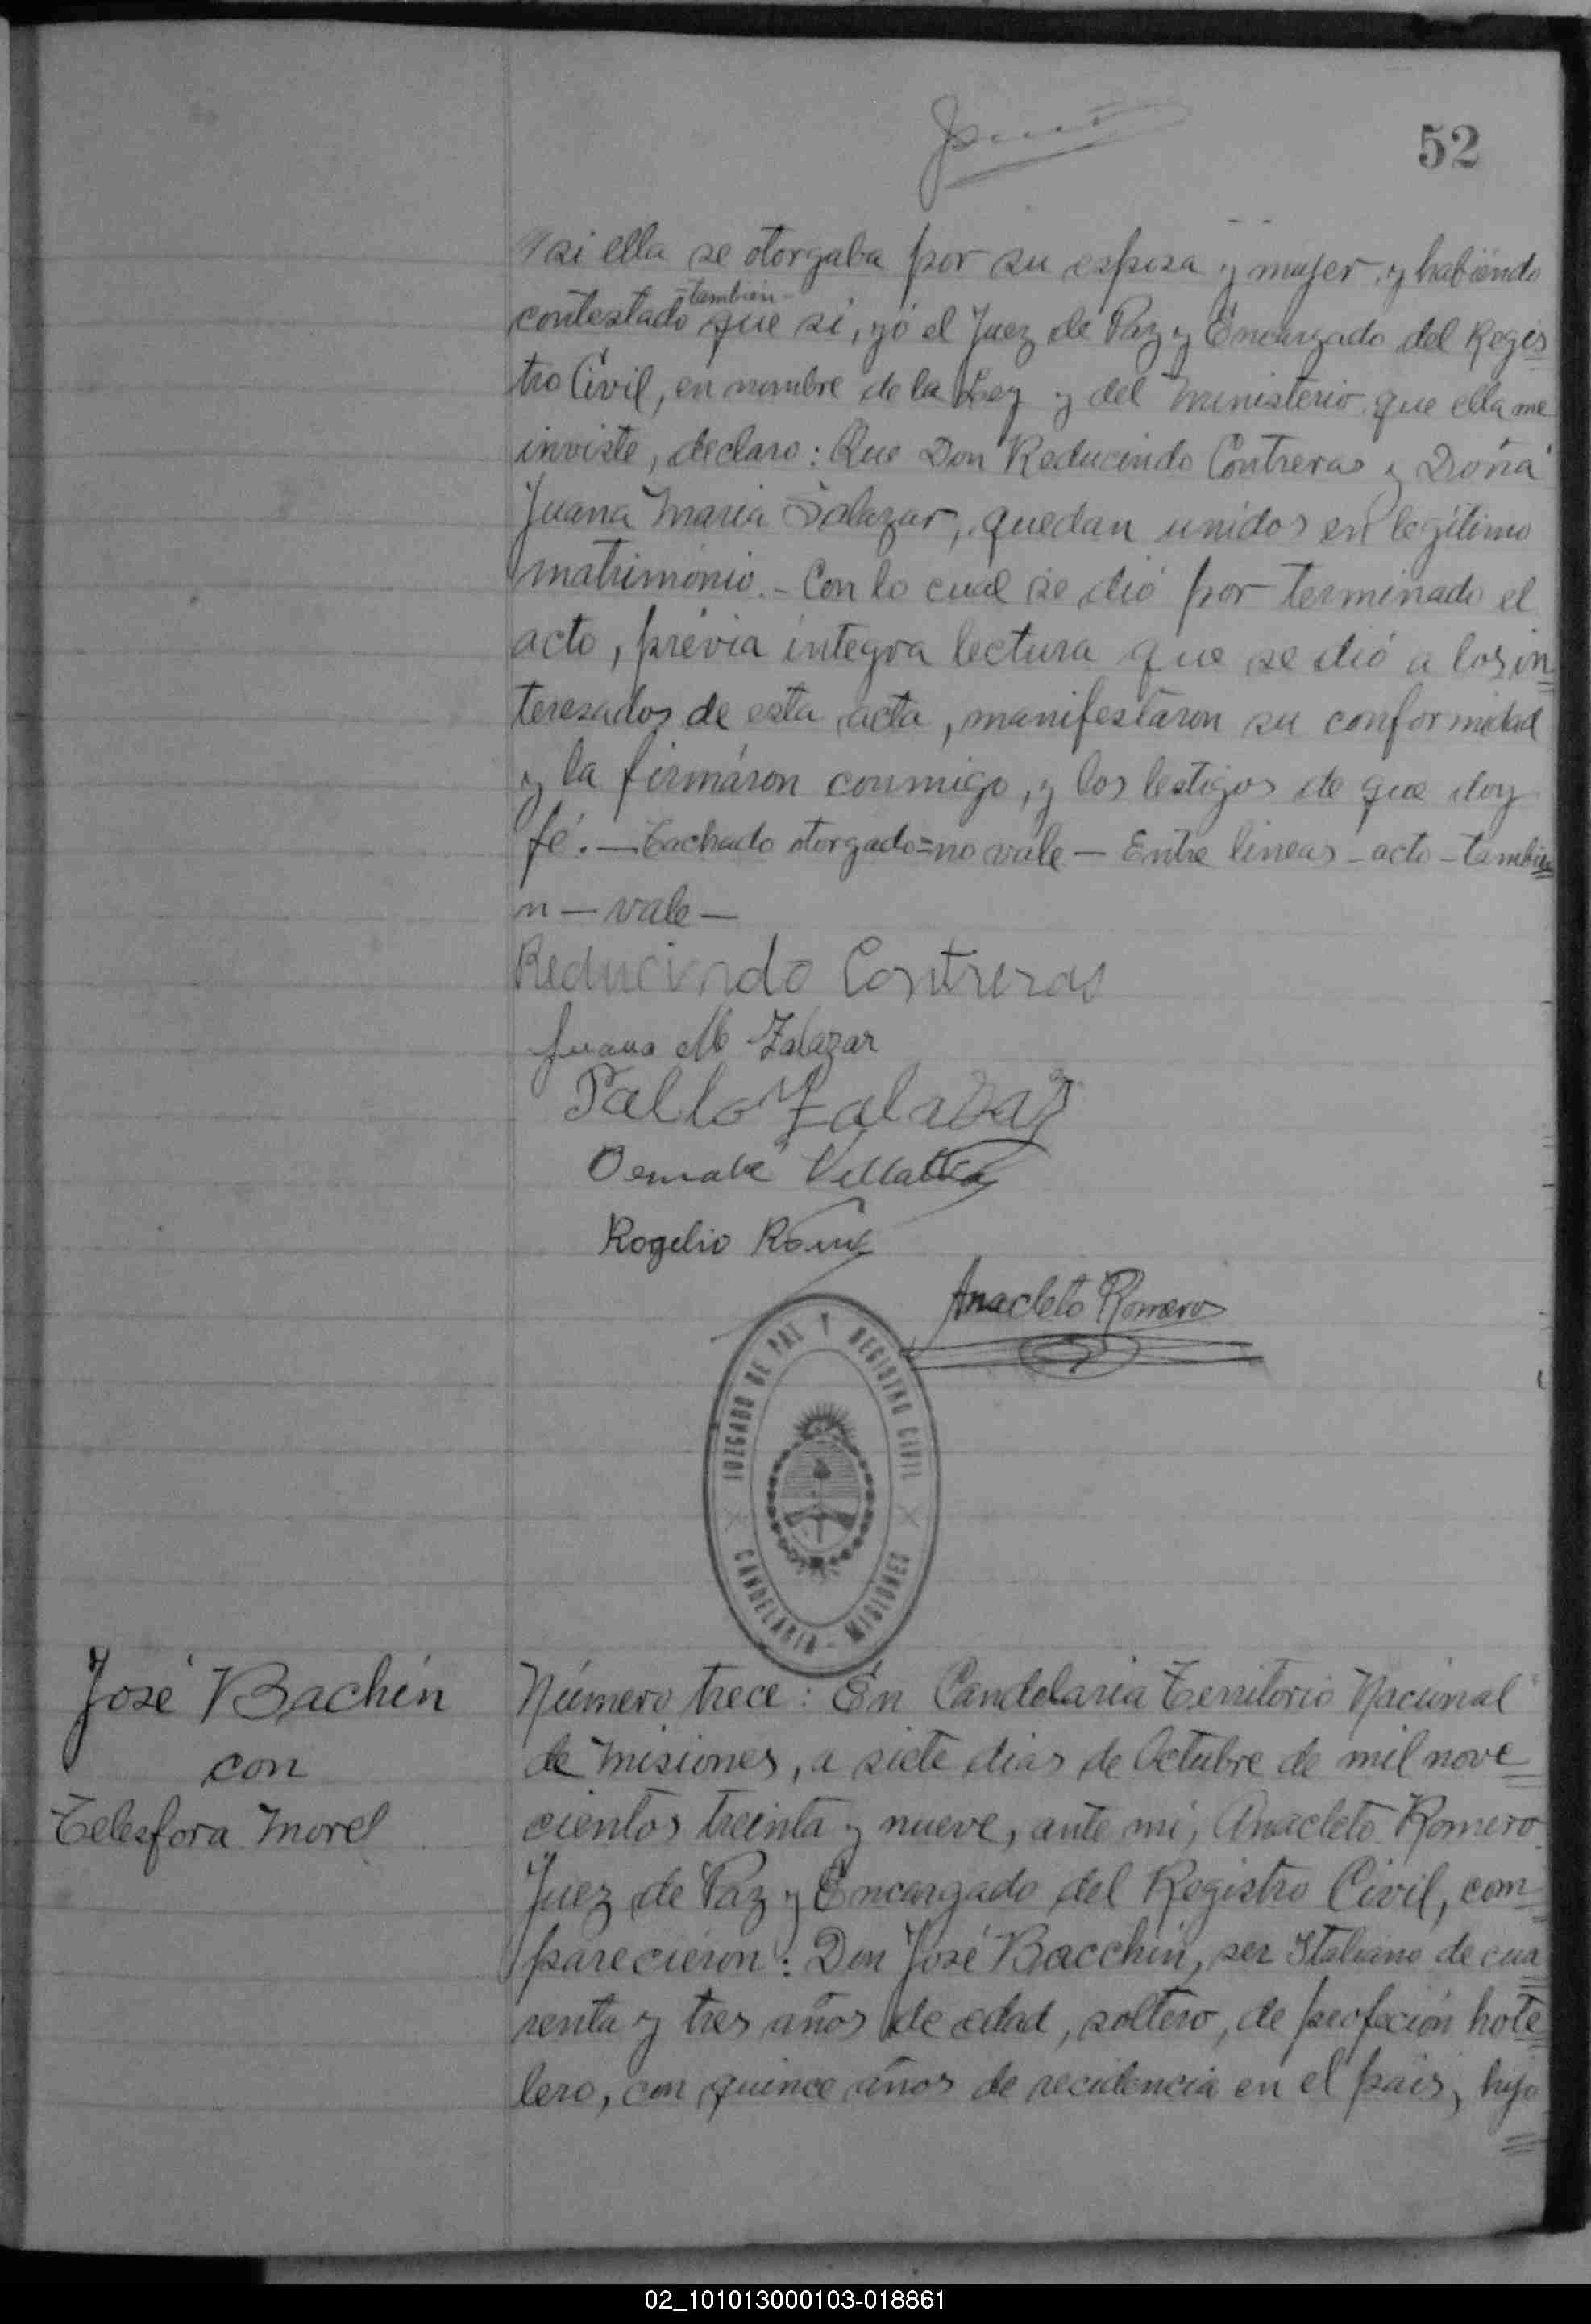 52
si ella se otorgaba por su esposa y mujer y habiendo
también
contestado que si, yó el Juez de Paz y Encargado del Regis
tro Civil, en nombre de la Ley y del Ministerio que ella me
inviste, declaro: Que Don Reducindo Contreras y Doña
Juana Maria Salazar, quedan unidos en legítimo
matrimonio.- Con lo cual se dió por terminado el
acto, prévia integra lectura que se dió a los in
teresados de esta acta, manifestáron su conformidad
y la firmáron conmigo, y los testigos de que doy
fé.— Tachado otorgado=no vale — Entre lineas - acto - tambie
n — vale —
Reducindo Contreras
Juana M Zalazar
Zalazar
Rogelio
Anacleto Romero
JUZGADO DE PAZ Y REGISTRO CIVIL
CANDELARIA - MISIONES
José Bachin
con
Telesfora Morel
Número trece: En Candelaria Territorio Nacional
de Misiones, a siete dias de Octubre de mil nove
cientos treinta y nueve, ante mi, Anacleto Romero
Juez de Paz y Encargado del Registro Civil, com
pareciéron: Don José Bacchin, ser Italiano de cua
renta y tres años de edad, soltero, de profeción hote
lero, con quince años de recidencia en el pais, hijo
02_101013000103-018861